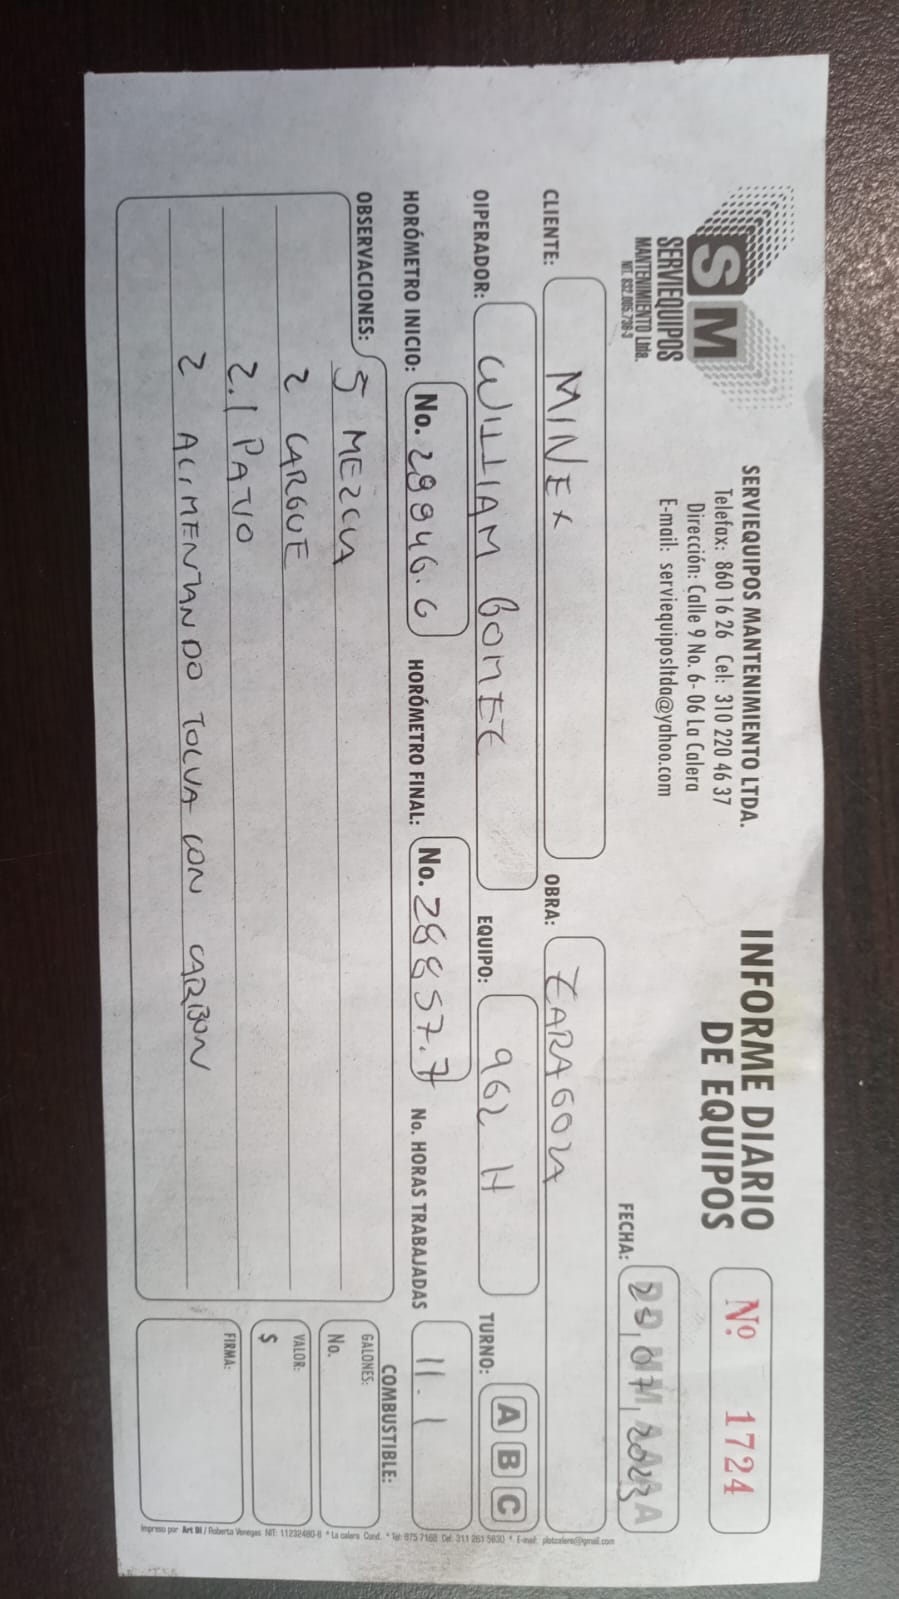 SM
SERVIEQUIPOS
MANTENIMIENTO Ltda.
NIT. 832.005.738-3
SERVIEQUIPOS MANTENIMIENTO LTDA.
Telefax: 860 16 26 Cel: 310 220 46 37
Dirección: Calle 9 No. 6- 06 La Calera
E-mail: serviequiposltda@yahoo.com
INFORME DIARIO
DE EQUIPOS
Nº 1724
FECHA: 07 2023
CLIENTE: MINEX OBRA: ZARAGOZA
OIPERADOR: WILLIAM GOMEZ EQUIPO: 962 H TURNO: A B C
HORÓMETRO INICIO: No. 28846.6 HORÓMETRO FINAL: No. 28857.7 No. HORAS TRABAJADAS 11.1
OBSERVACIONES: 5 MEZCLA
2 CARGUE
2.1 PATIO
2 ALIMENTANDO TOLVA CON CARBON
COMBUSTIBLE:
GALONES:
No.
VALOR:
$
FIRMA:
Impreso por Art Di / Roberto Venegas NIT: 11232480-8 * La calera Cund. * Tel: 875 7168 Cel: 311 261 5830 * E-mail: plotcalera@gmail.com